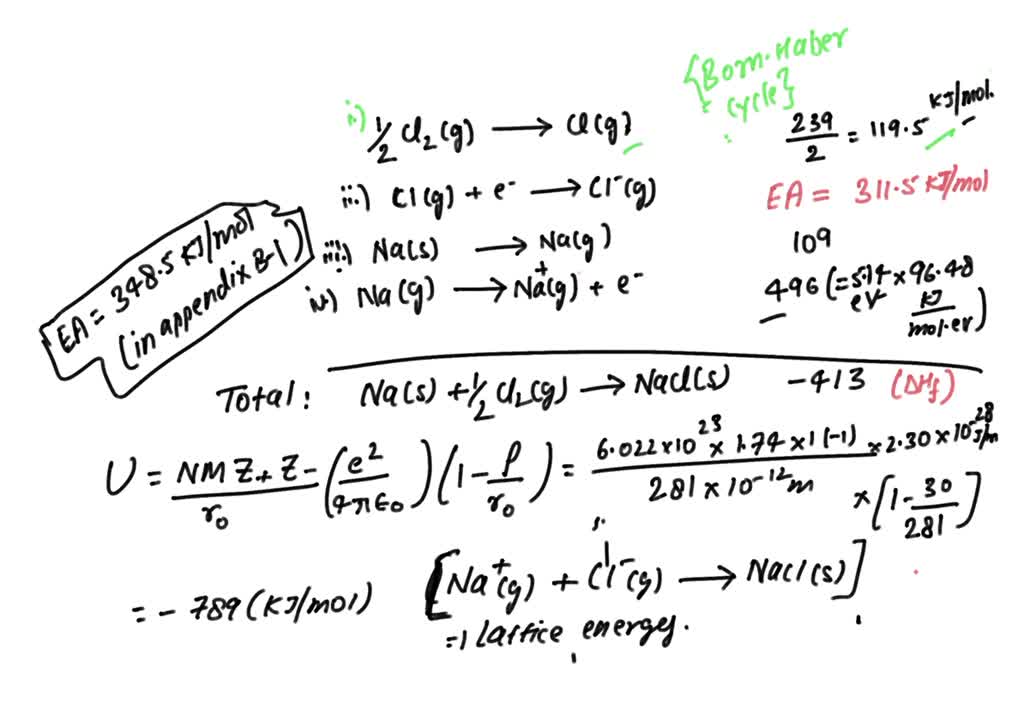 {Born-Haber
cycle}
i.) 1/2 Cl₂(g) → Cl(g) 239/2 = 119.5 KJ/mol.
ii.) Cl(g) + e⁻ → Cl⁻(g) EA = 311.5 KJ/mol
iii.) Na(s) → Na(g) 109
iv) Na(g) → Na⁺(g) + e⁻ 496 (= 5.14 × 96.48
eV KJ/mol.ev)
EA = 348.5 KJ/mol
(in appendix B-1)
Total: Na(s) + 1/2 Cl₂(g) → NaCl(s) -413 (ΔHf)
U = NMZ+Z-/r₀ (e²/4πε₀)(1 - ρ/r₀) = 6.022×10²³ × 1.74 × 1(-1)/281×10⁻¹²m × 2.30×10⁻²⁸ J/m
× [1 - 30/281]
= - 789 (KJ/mol) [Na⁺(g) + Cl⁻(g) → NaCl(s)]
=1 Lattice energy.